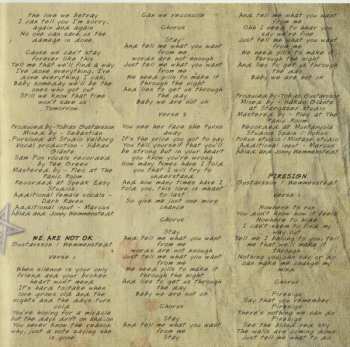 The love we betray
I can tell you I'm sorry,
again and again
No one can save us the
damage is done

Cause we can't stay
forever like this
Tell me that we'll find a way
I've done everything, I've
done everything I can
Baby someday we'll be the
ones who got out
Still we know that time
won't save us
Tomorrow

Produced by Tobias Gustavsson
Mixed by - Sebastian
Forslund at Studio Varberg
Vocal production - Håkan
Glänte
Sam Pun vocals recorded
by The Green
Mastered by - Plec at The
Panic Room
Recorded at Speak Easy
Studios
Additional female vocals -
Dark Raven
Additional input - Marcus
Nliad and Jonny Hemmenstedt

WE ARE NOT OK
Gustavsson / Hemmenstedt

Verse 1

When silence is your only
friend and your broken
heart won't mend
It's hard to take when
love grows old and the
nights and the days turn
cold
You're hoping for a miracle
but the days drift on and on
You never know the reason
why, just a note saying she
is gone

Can we reconcile

Chorus

Stay
And tell me what you want
from me
Words are not enough
Just tell me what you want
from me
We need pills to make it
through the night
And lies to get us through
the day
Baby we are not ok

Verse 2

You see her face she turns
away
It's the price you got to pay
You tell yourself that you'll
be strong but in your heart
you know you're wrong
How many times have I told
you that I will try to
understand
And how many times have I
told you, this love is meant
to last
So give me just one more
chance

Chorus

Stay
And tell me what you want
from me
Words are not enough
Just tell me what you want
from me
We need pills to make it
through the night
And lies to get us through
the day
Baby we are not ok

Chorus

Stay
And tell me what you want
from me
Stay

And tell me what you want
from me
Oh I need to hear you
say we're fine
Just tell me what you want
from me
We need pills to make it
through the night
And lies to get us through
the day
Baby we are not ok

Produced by Tobias Gustavsson
Mixed by - Håkan Glänte
at Stargazer Studio
Mastered by - Plec at The
Panic Room
Recorded at
Studios
Additional input - Marcus
Nliad and Jonny Hemmenstedt

FIRESIGN
Gustavsson / Hemmenstedt

Verse 1

Nowhere to run
You don't know how it feels
Nowhere to hide
I can't seem to find my
way out
Tell me I belong to you, tell
me that we'll make it
through
Nothing you can say or do
can make me change my
mind

Chorus

Firesign
Say that you remember
Firesign
There's nothing we can do
Firesign
See the blood red sky
The walls are coming down
Just tell me what to do